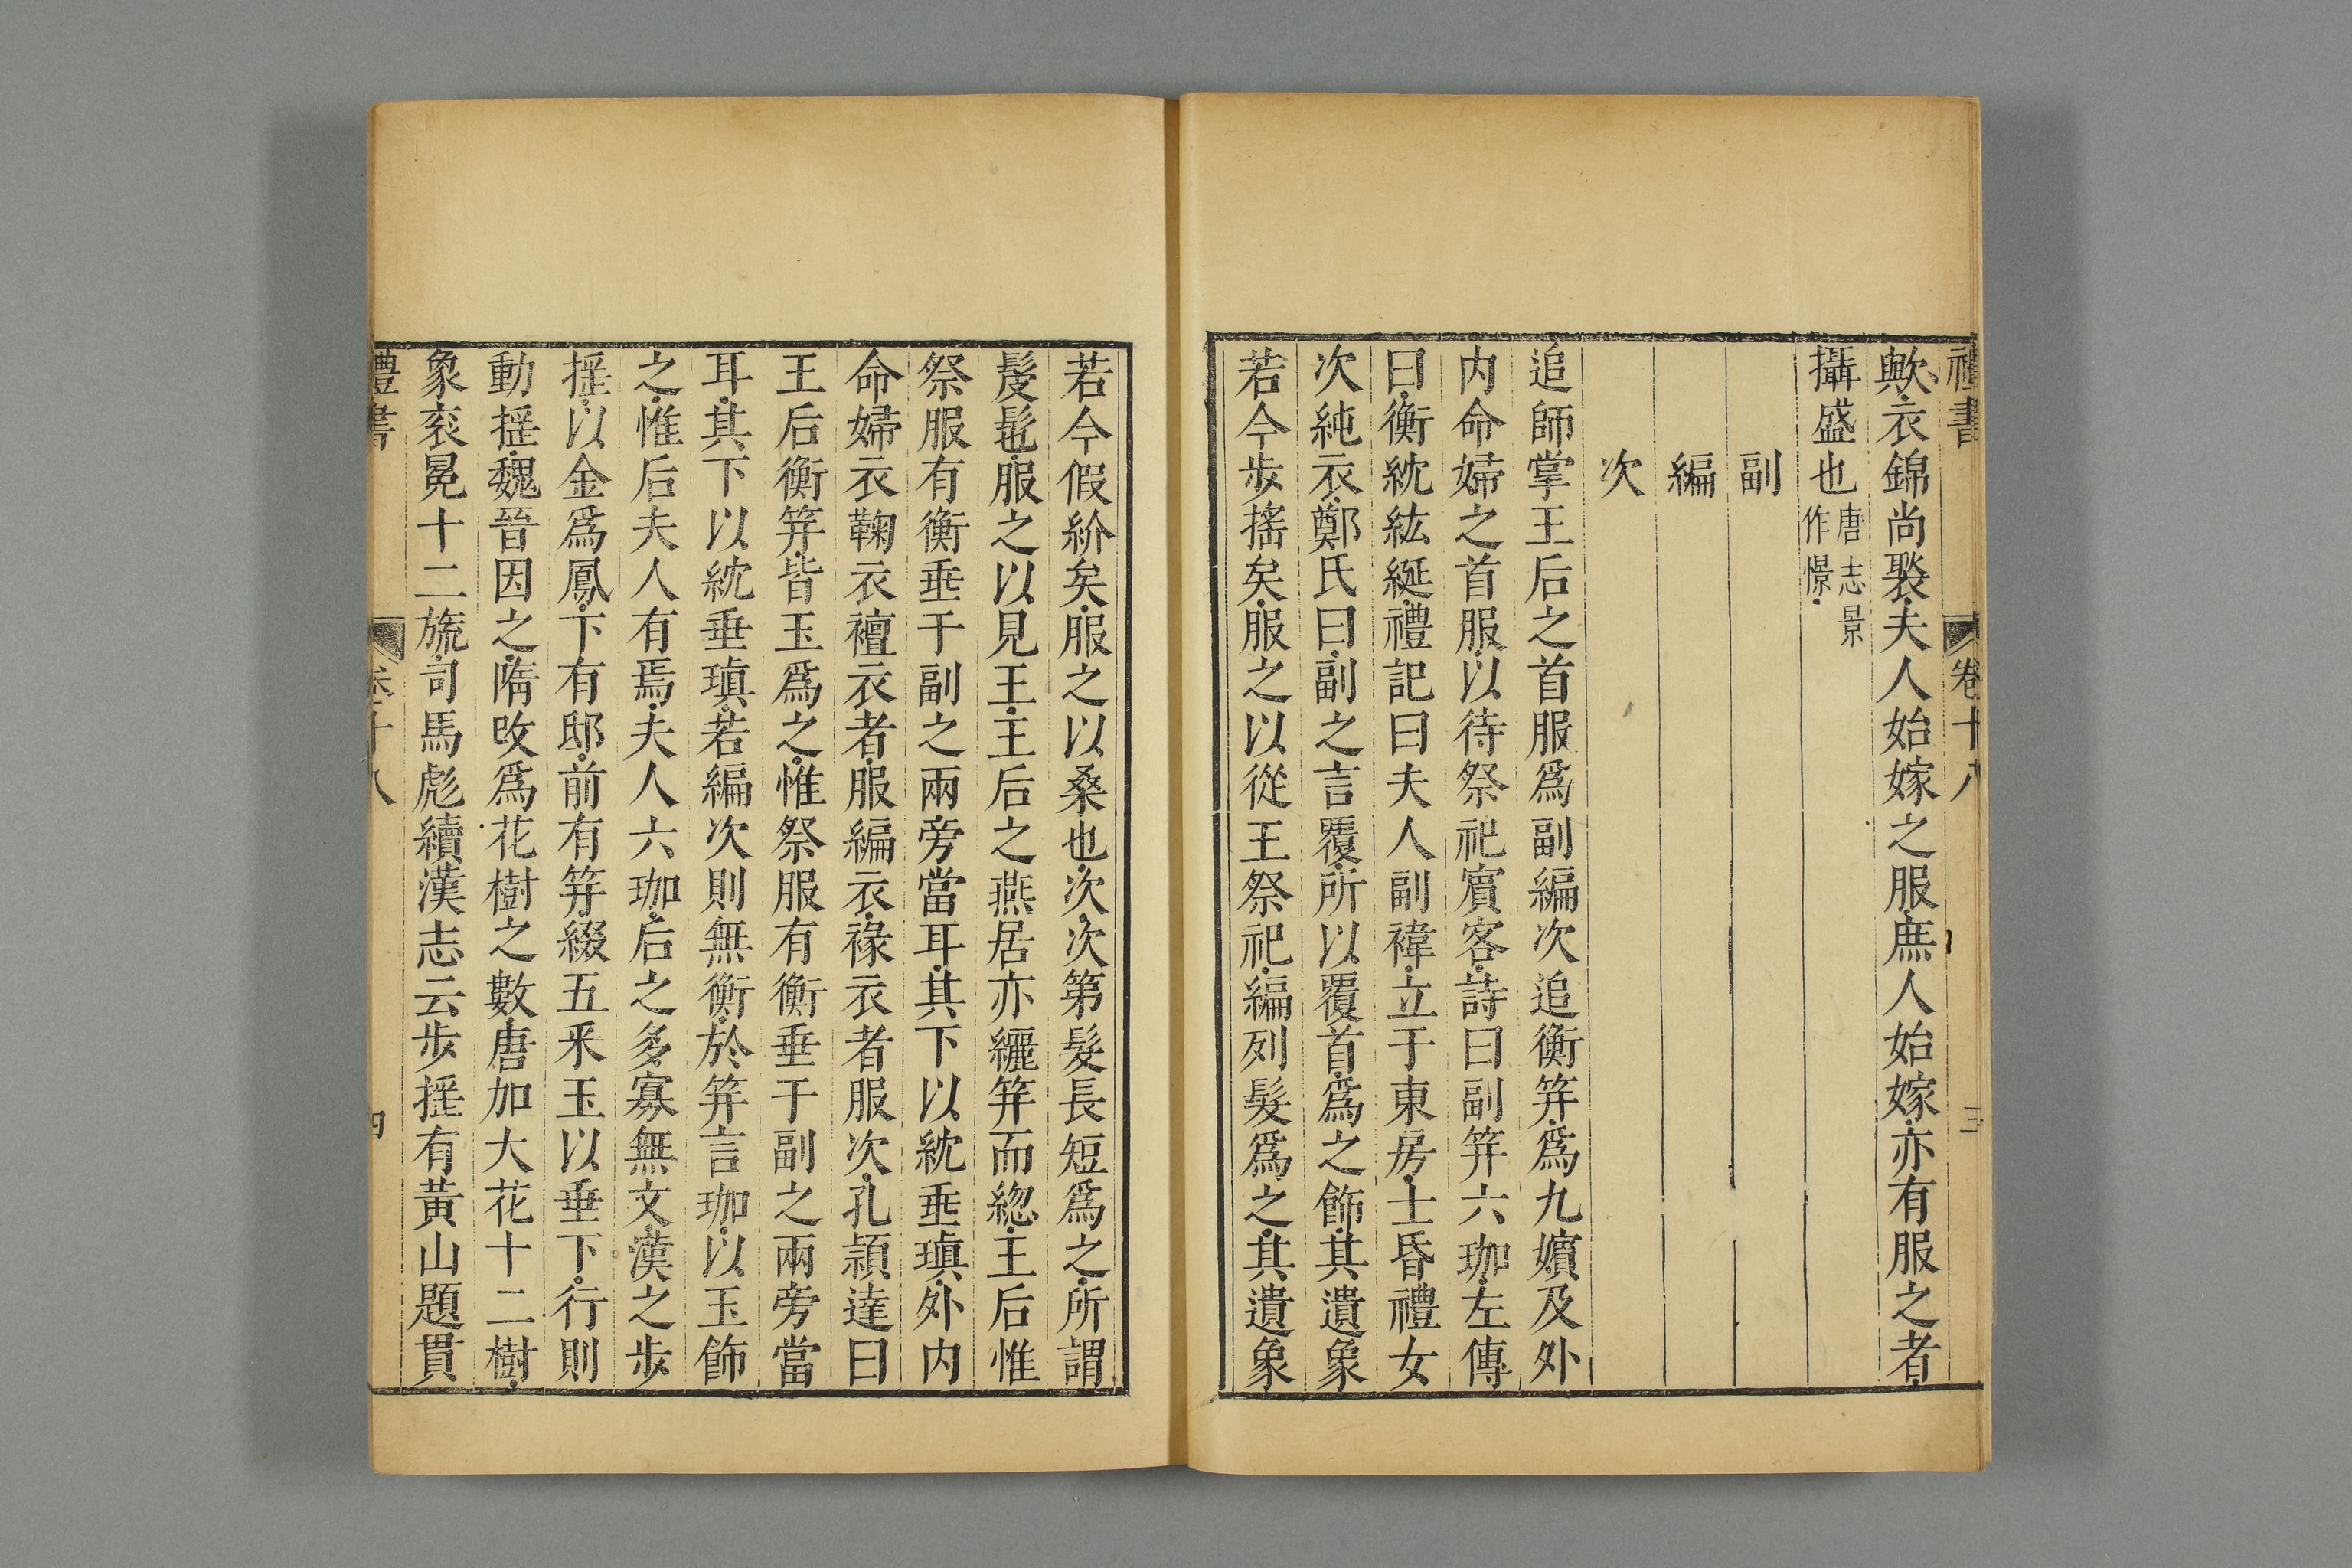 禮書
卷十八
三
歟衣錦尚褧夫人始嫁之服庶人始嫁亦有服之者
攝盛也唐志景作憬
副
編
次
追師掌王后之首服爲副編次追衡笄爲九嬪及外
内命婦之首服以待祭祀賔客詩曰副笄六珈左傳
曰衡紞紘綖禮記曰夫人副褘立于東房士昏禮女
次純衣鄭氏曰副之言覆所以覆首爲之飾其遺象
若今歩搖矣服之以從王祭祀編列髮爲之其遺象
若今假紒矣服之以桑也次次第髮長短爲之所謂
髲髢服之以見王王后之燕居亦纚笄而緫王后惟
祭服有衡垂于副之兩旁當耳其下以紞垂瑱外内
命婦衣鞠衣襢衣者服編衣褖衣者服次孔頴達曰
王后衡笄皆玉爲之惟祭服有衡垂于副之兩旁當
耳其下以紞垂瑱若編次則無衡於笄言珈以玉飾
之惟后夫人有焉夫人六珈后之多寡無文漢之歩
揺以金爲鳳下有邸前有笄綴五釆玉以垂下行則
動揺魏晉因之隋攺爲花樹之數唐加大花十二樹
象衮冕十二旒司馬彪續漢志云歩揺有黃山題貫
禮書
卷十八
四